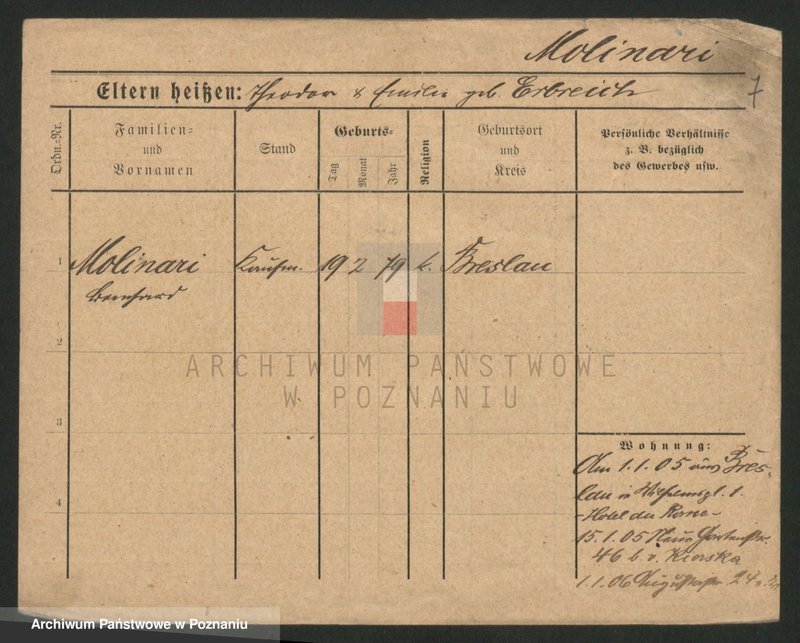 Molinari
7
Eltern heißen: Theodor & Emilie geb. Erbreich
Ordn.-Nr.
Familien- und Vornamen
Stand
Geburts-
Tag
Monat
Jahr
Religion
Geburtsort und Kreis
Persönliche Verhältnisse z. B. bezüglich des Gewerbes usw.
1
Molinari Kaufm. 19 2 79 k. Breslau
Bernhard
2
ARCHIWUM PAŃSTWOWE
W POZNANIU
3
4
Wohnung:
Am 1.1.05 aus Bres-
lau in Wilhelmspl. 1.
-Hotel du Rome-
15.1.05 Neue Gartenstr.
46 b. v. Kierska
1.1.06 24
Archiwum Państwowe w Poznaniu